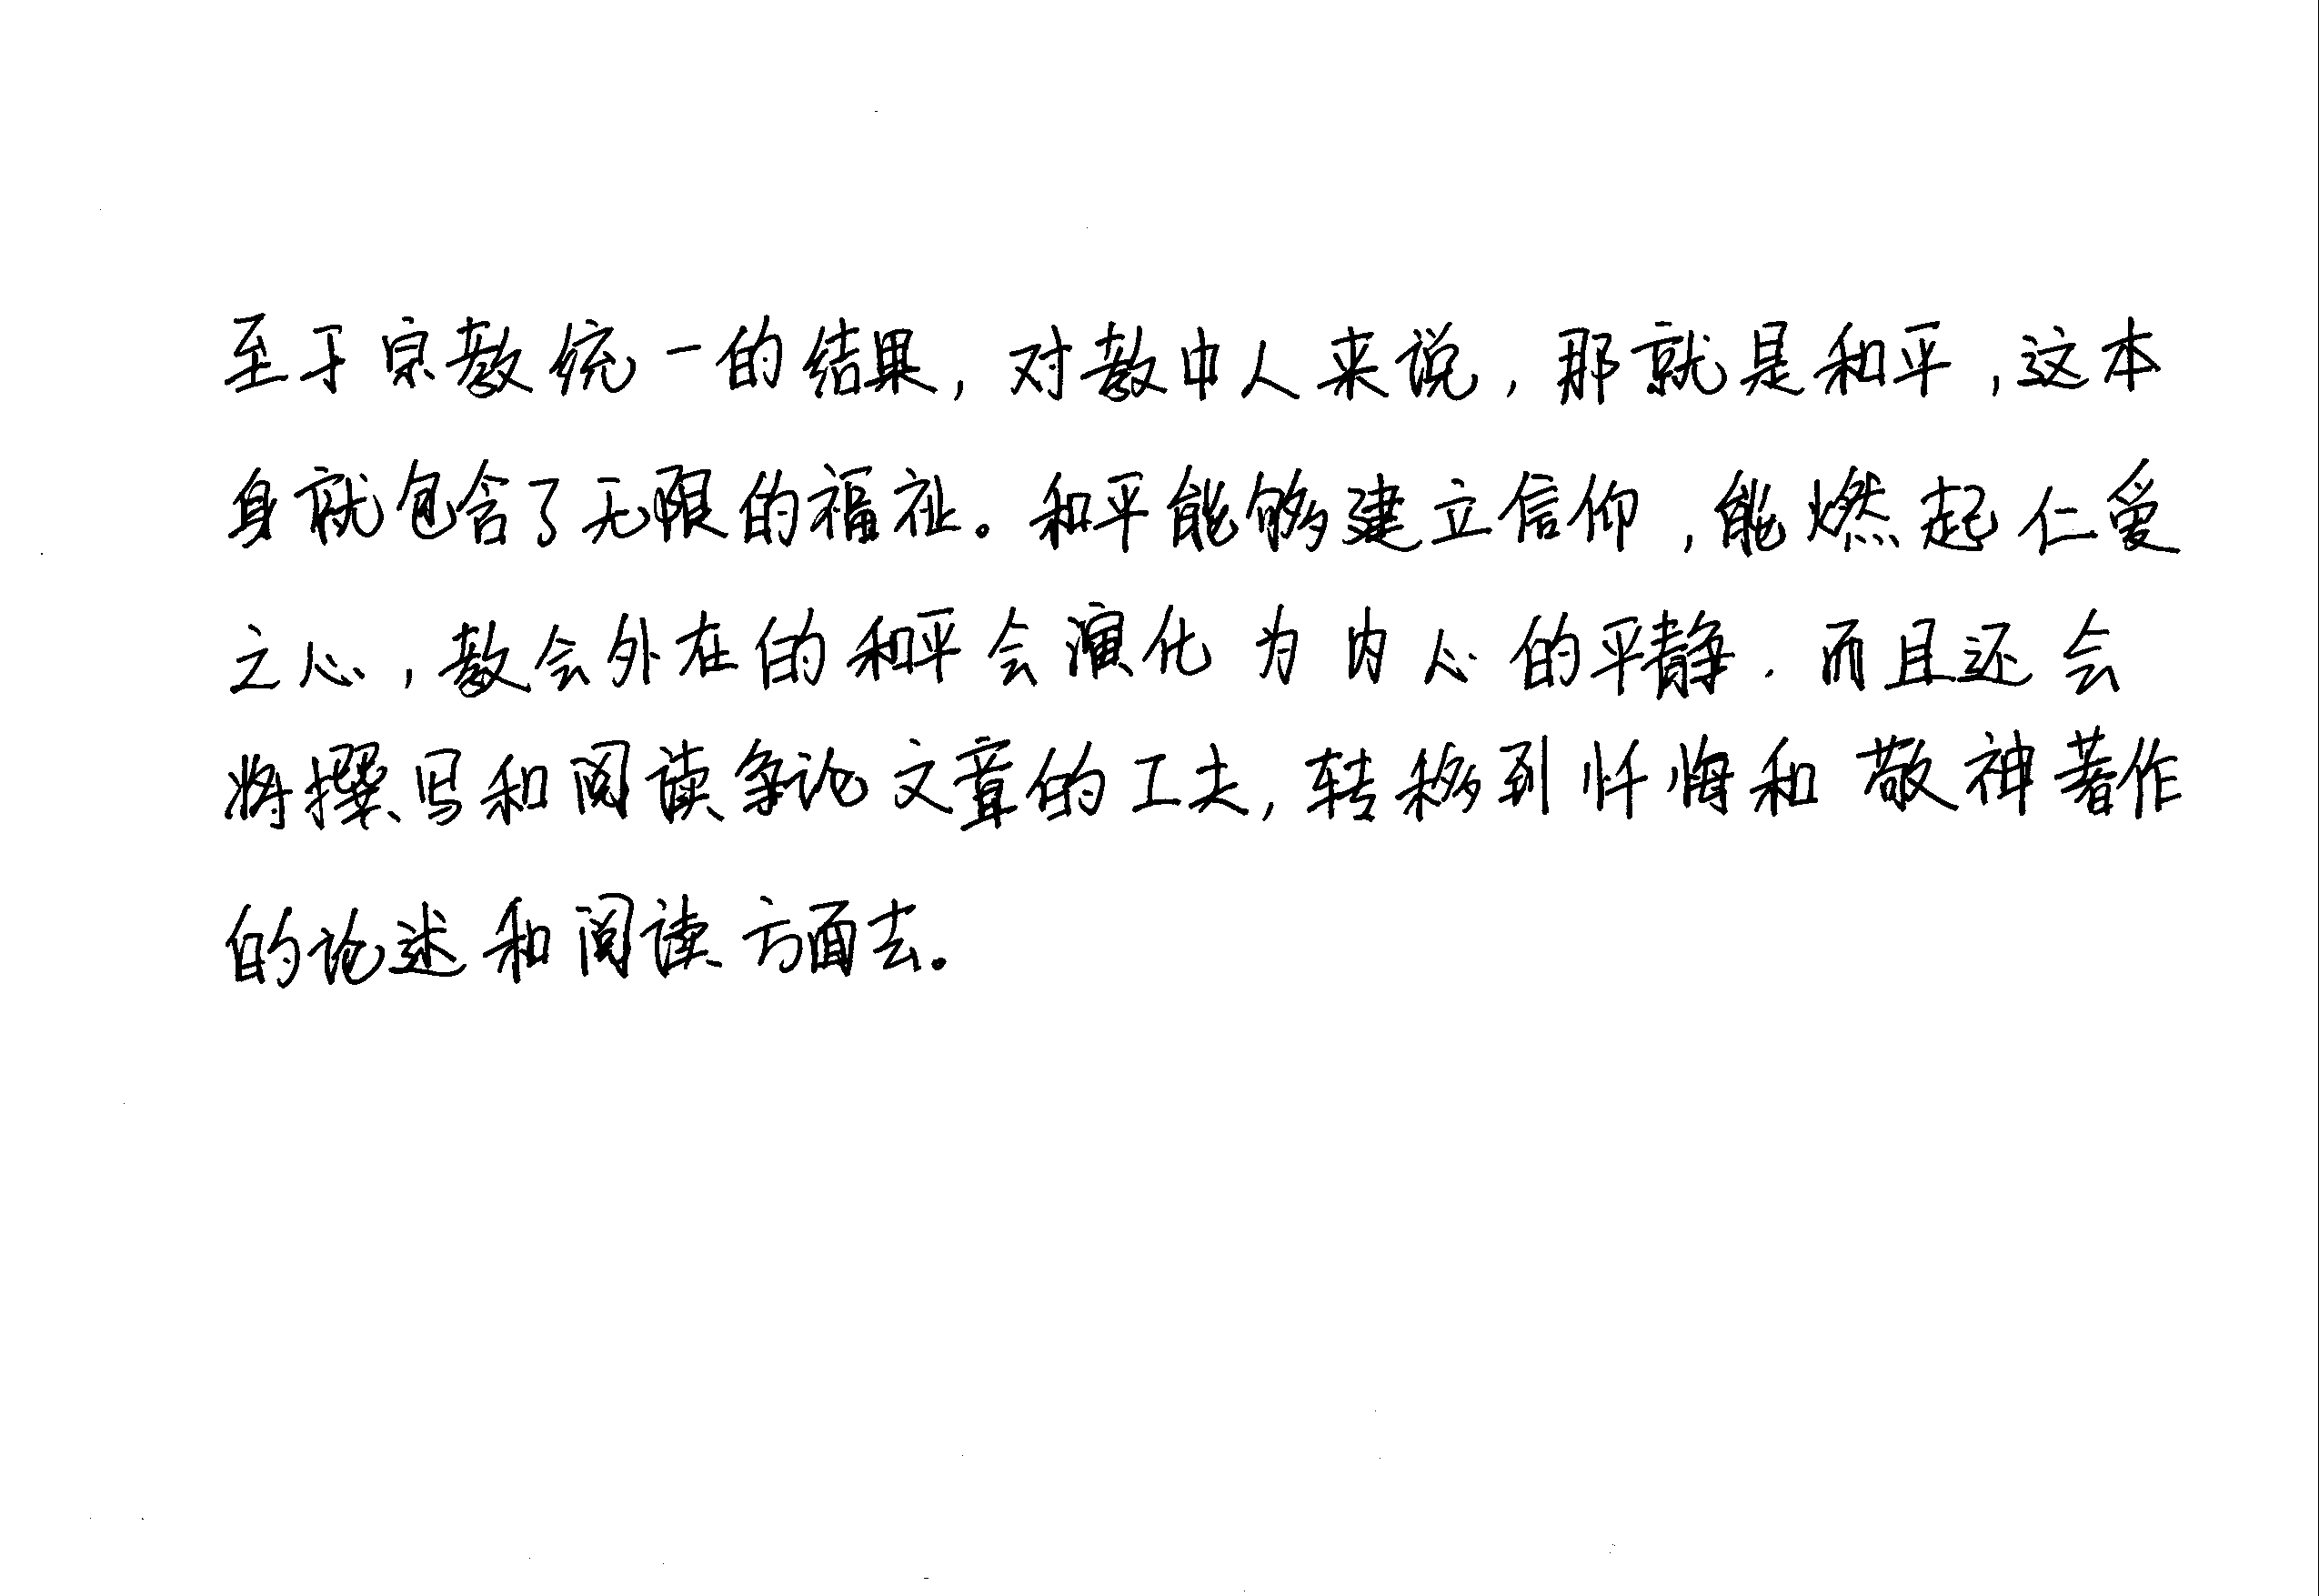 至于宗教统一的结果，对教中人来说，那就是和平，这本
身就包含了无限的福祉。和平能够建立信仰，能燃起仁爱
之心，教会外在的和平会演化为内心的平静．而且还会
将撰写和阅读争论文章的工夫，转移到忏悔和敬神著作
的论述和阅读方面去。